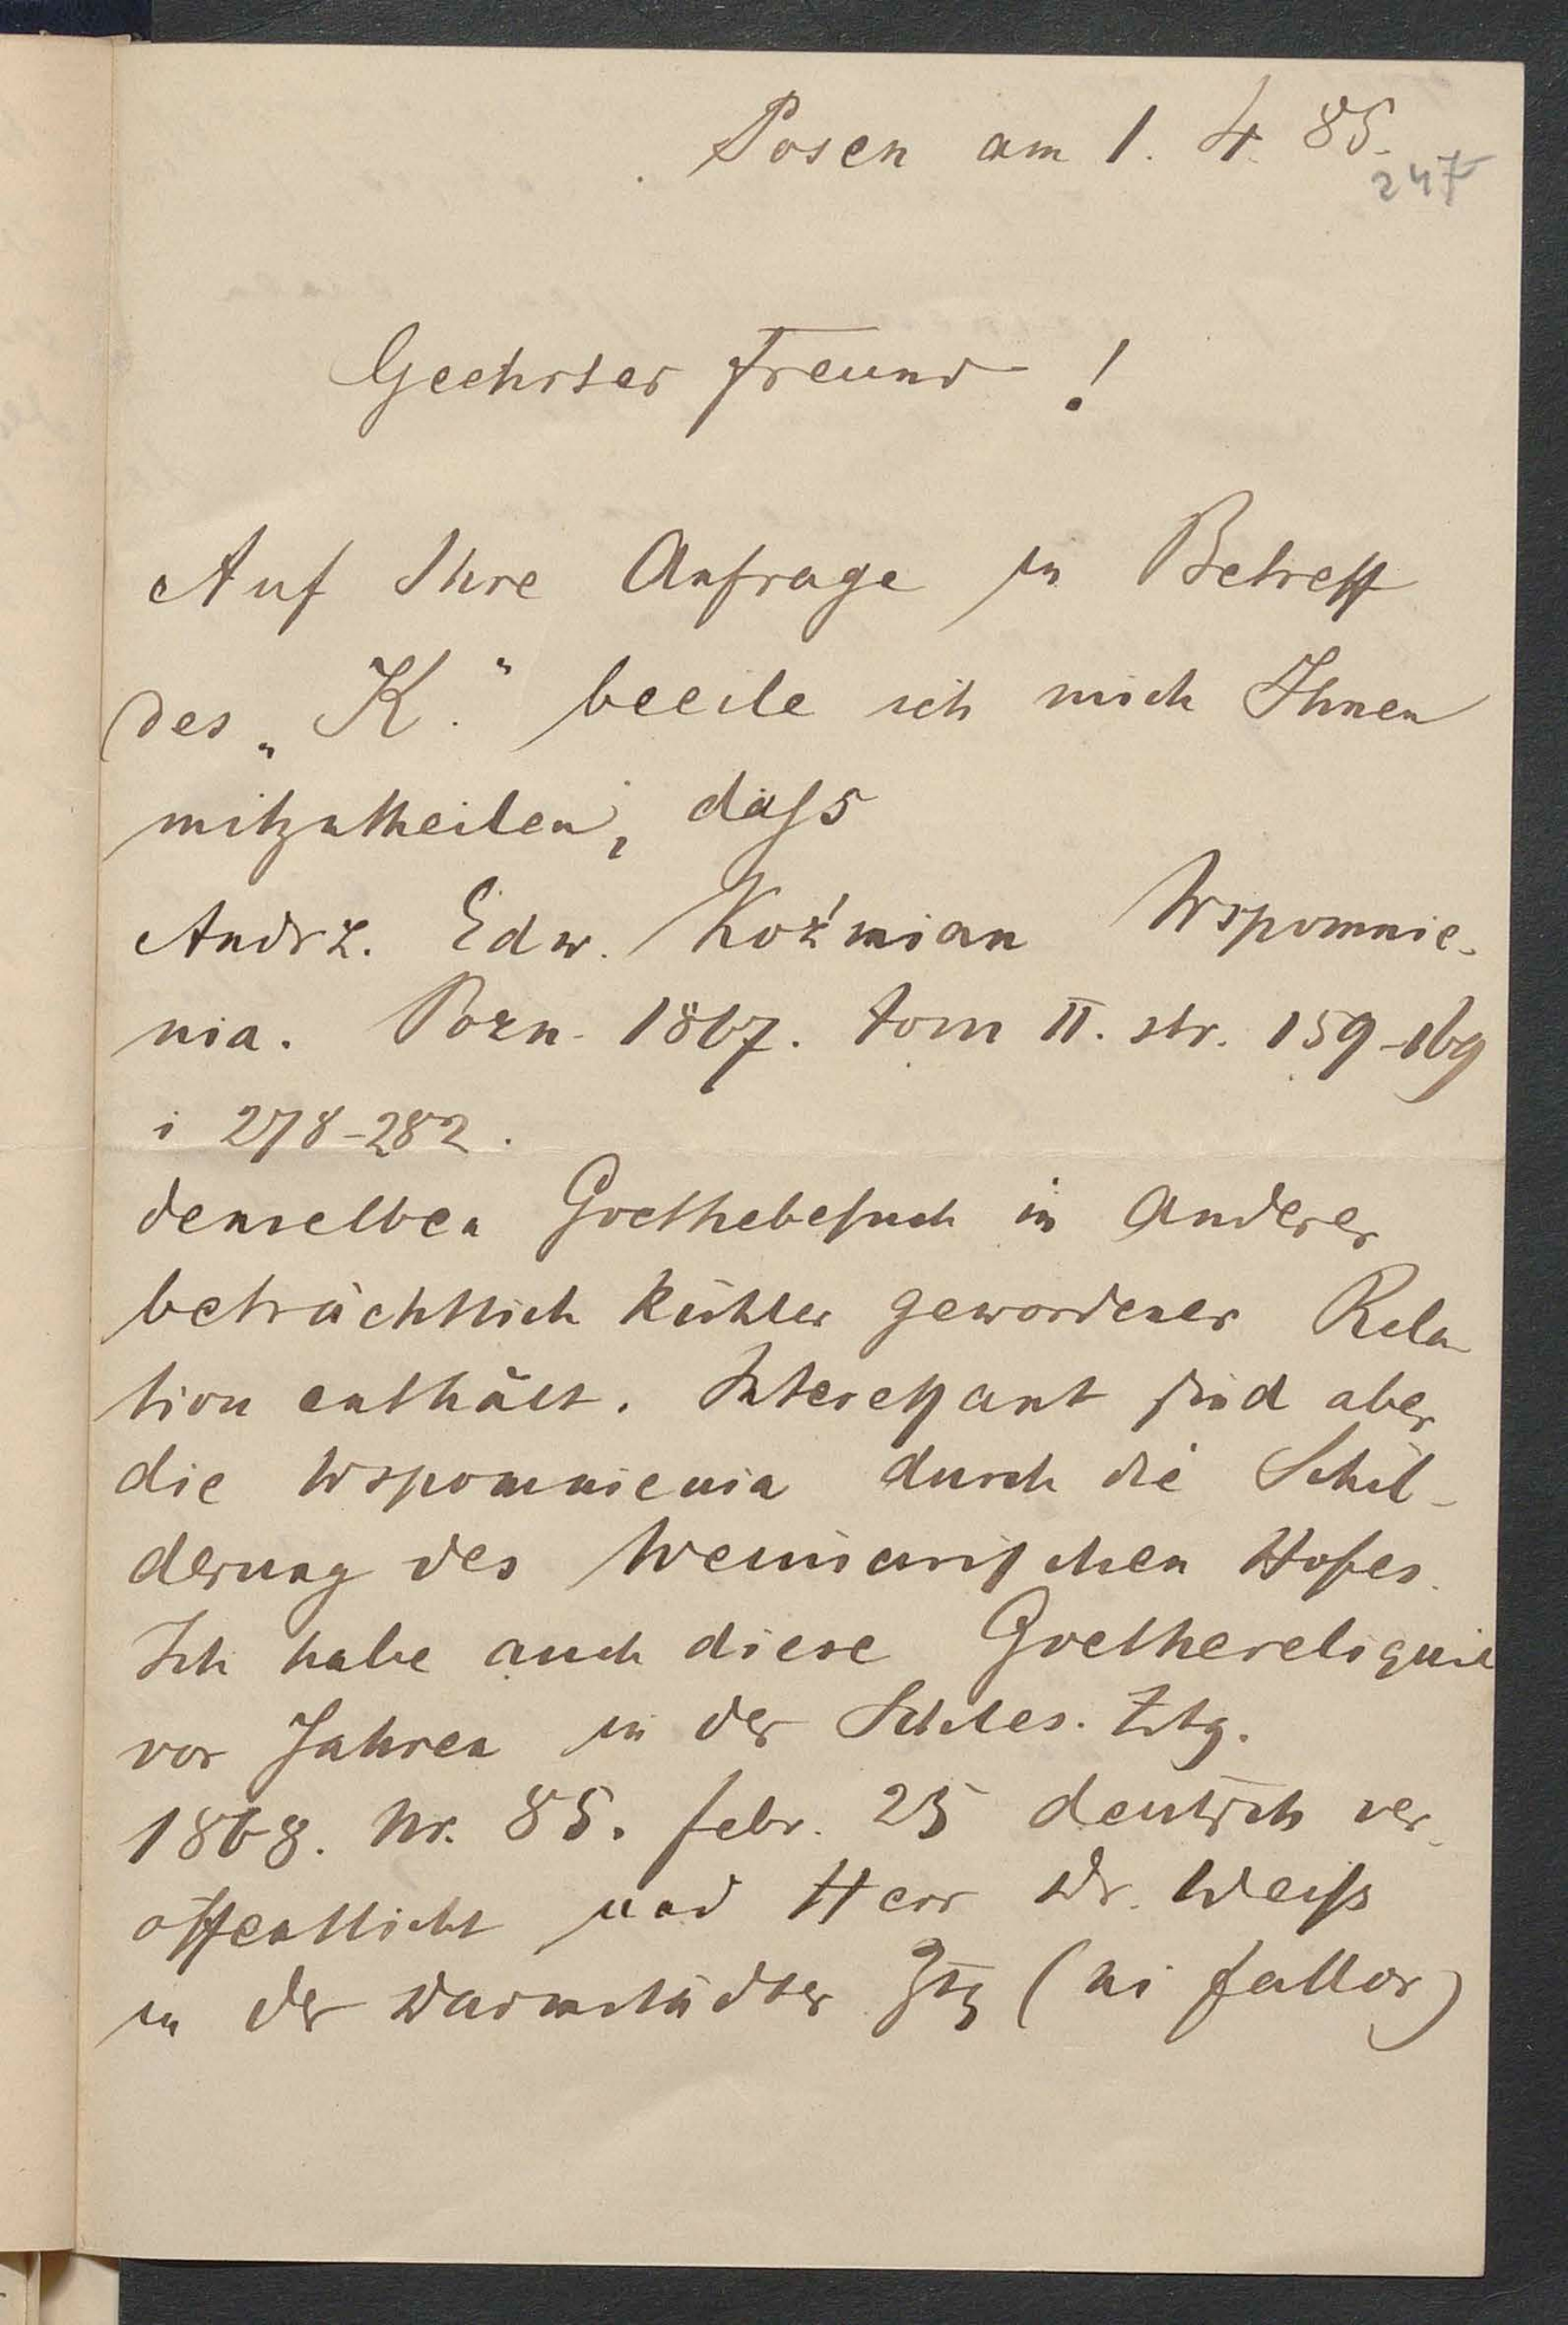 Posen am 1. 4. 85.
247
Geehrter Freund!
Auf Ihre Anfrage in Betreff
des „K." beeile ich mich Ihnen
mitzutheilen, dass
Andrz. Edw. Koźmian Wspomnie-
nia. Pozn. 1867. tom II. str. 159-169
i 278-282.
denselben Goethebesuch in anderer
beträchtlich kühler gewordener Rela-
tion enthält. Interessant sind aber
die Wspomnienia durch die Schil-
derung des Weimarischen Hofes.
Ich habe auch diese Goethereliquie
vor Jahren in der Schles. Ztg.
1868. Nr. 85. febr. 25 deutsch ver-
öffentlicht und Herr Dr. Weiss
in der Darmstädter Ztg (ni fallor)